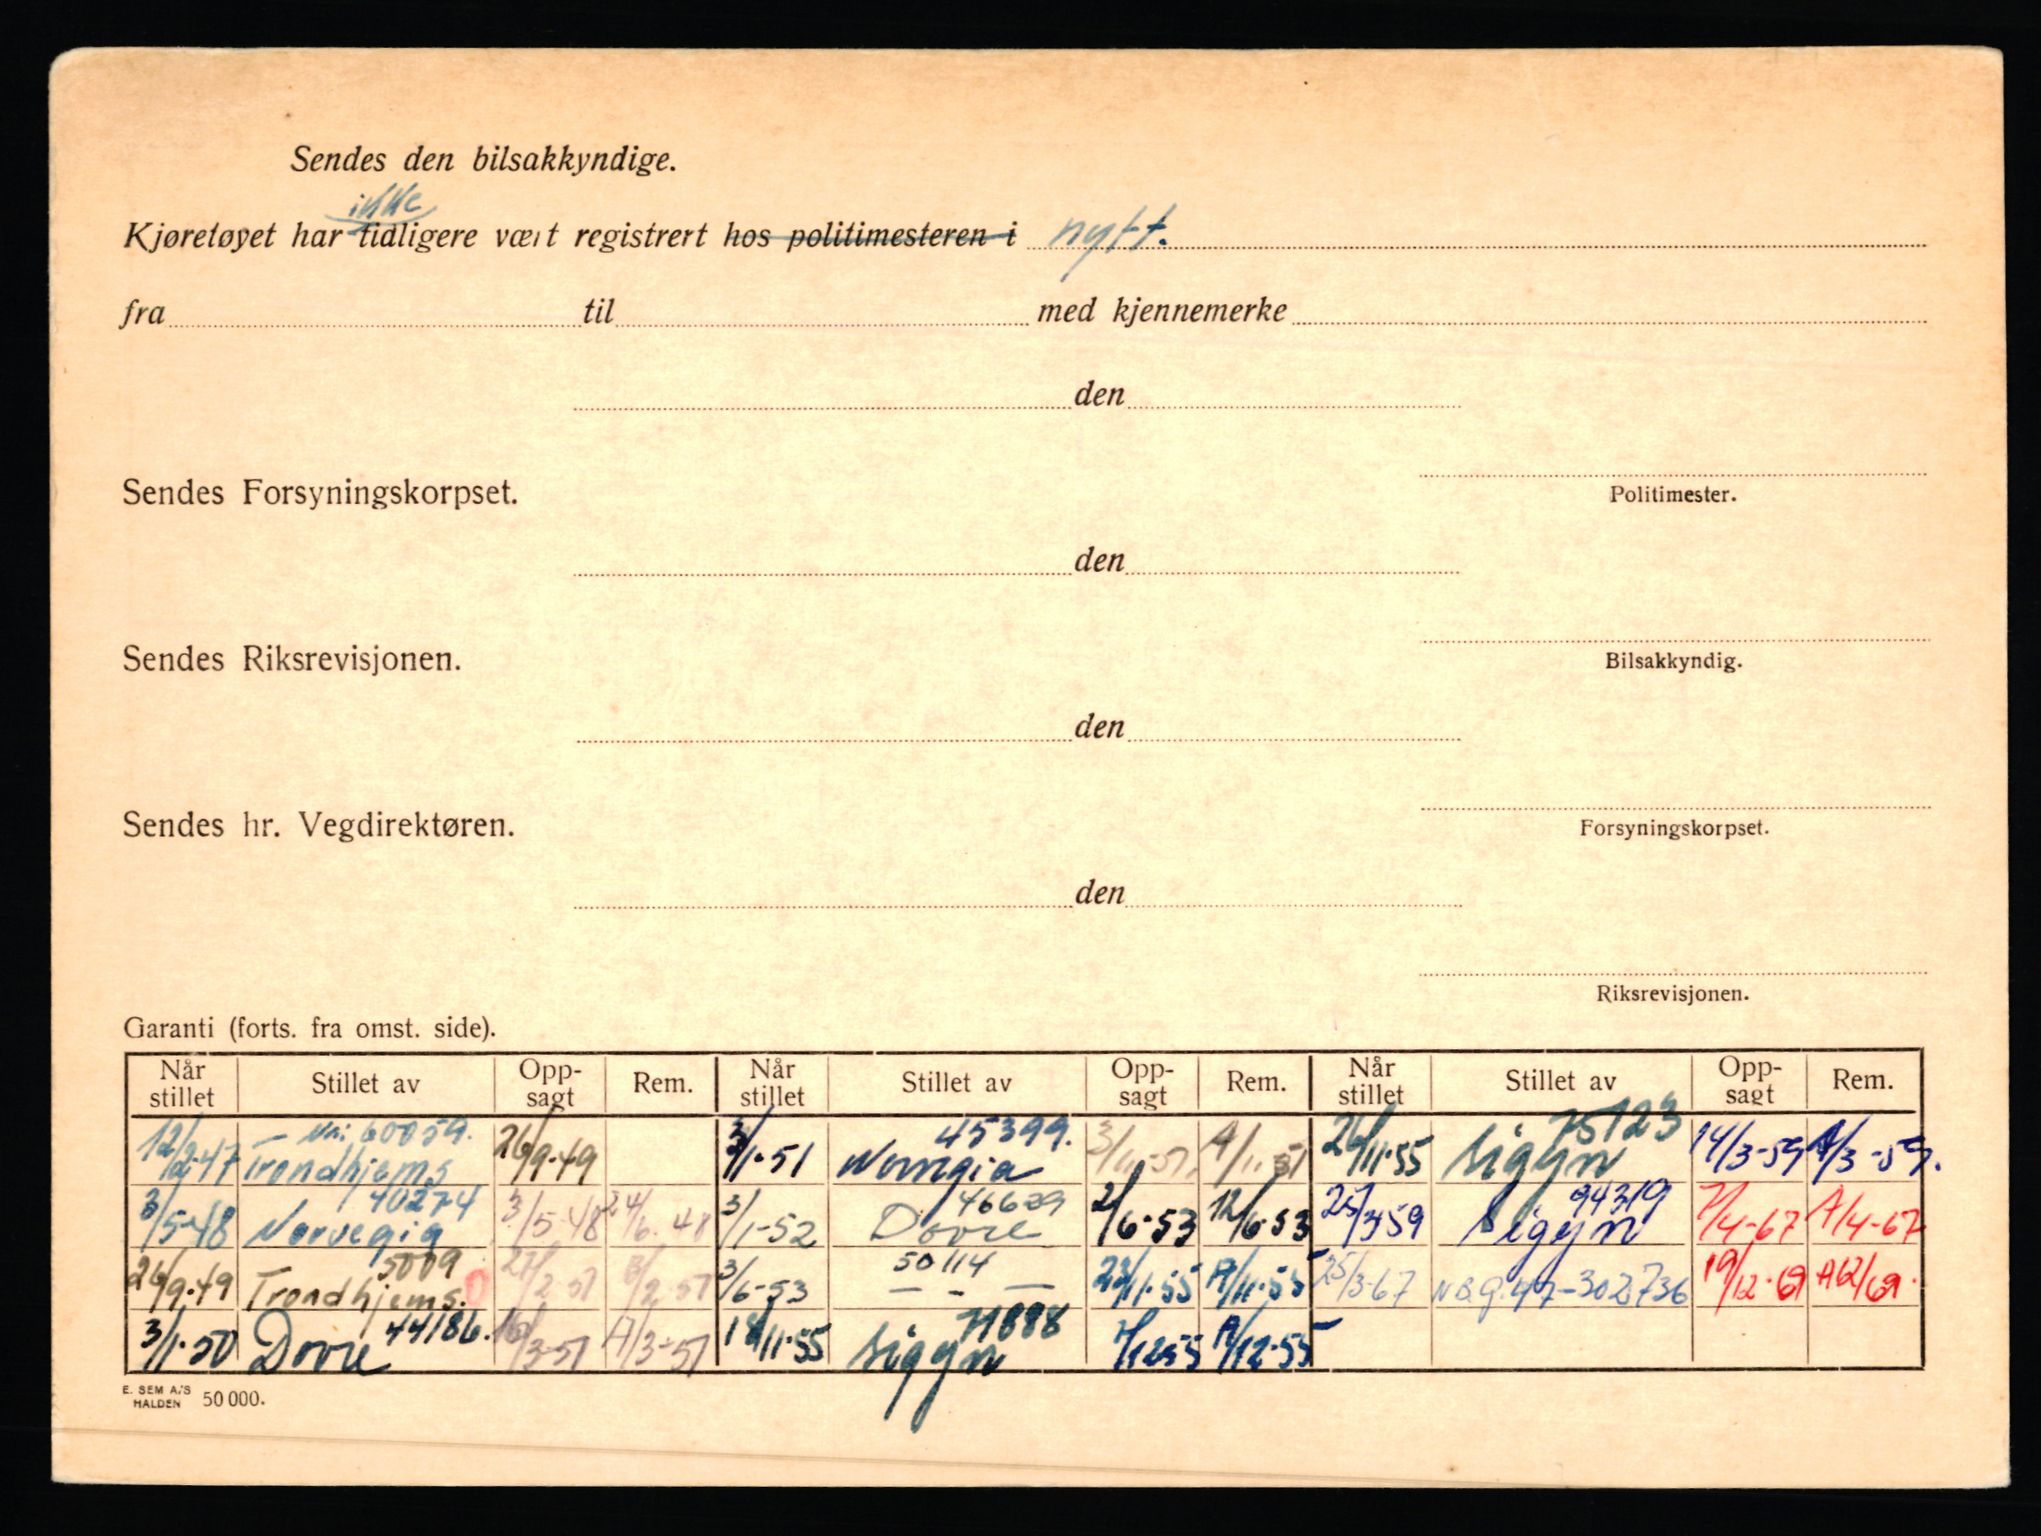 Sendes den bilsakkyndige.
ikke
Kjøretøyet har tidligere vært registrert hos politimesteren i nytt.
fra til med kjennemerke
den
Politimester.
Sendes Forsyningskorpset.
den
Bilsakkyndig.
Sendes Riksrevisjonen.
den
Forsyningskorpset.
Sendes hr. Vegdirektøren.
den
Riksrevisjonen.
Garanti (forts. fra omst. side).
Når stillet Stillet av Opp-sagt Rem. Når stillet Stillet av Opp-sagt Rem. Når stillet Stillet av Opp-sagt Rem.
60059. 45399. 75123
12/12-47 Trondhjems 26/9-49 3/1-51 Norvegia 3/11-51 A/11.51 26/11-55 Sigyn 14/3-59 A/3-59.
40274 46629 94319
3/5-48 Norvegia 3/5-48 24/6.48 3/1-52 Dovre 2/6-53 12/6-53 25/3-59 Sigyn 7/4-67 A/4-67
5009 50114
26/9-49 Trondhjems. 27/2-51 3/2-51 3/6-53 — - — 23/11-55 A/11-55 25/3-67 47-302736 19/12-69 A12/69.
44186. 71888
3/1-50 Dovre 16/3-51 A/3-51 18/11-55 Sigyn 7/12-55 A/12-55
E. SEM A/S
HALDEN 50 000.